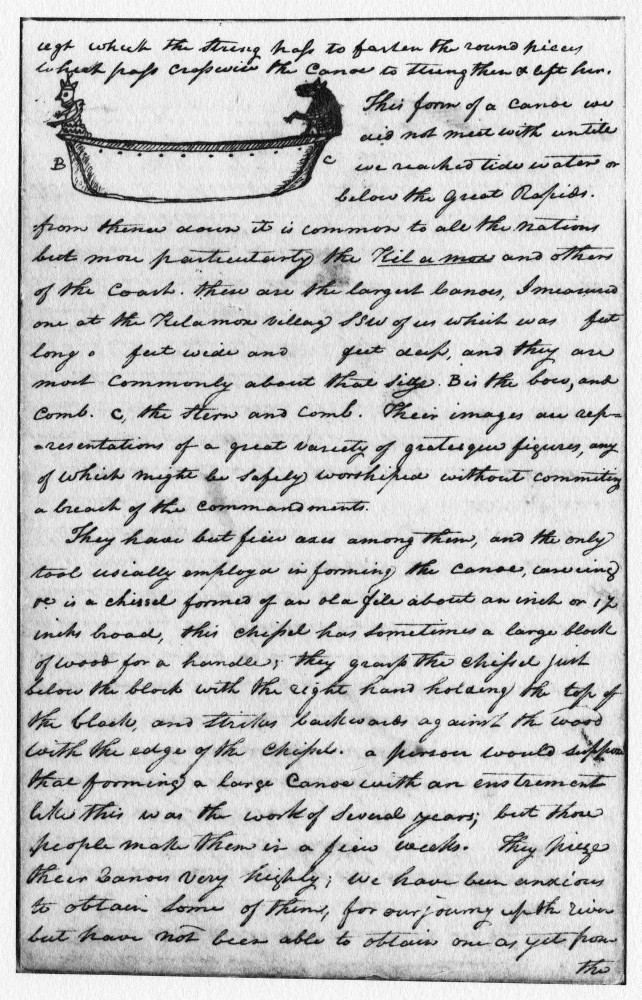 which the string pass to fasten the round pieces
which pass crosswise the Canoe to strengthen & lift her.
This form of a canoe we
did not meet with untill
we reached tide water or
B
C
below the Great Rapids.
from thence down it is common to all the nations
but more particularly the Kil a mox and others
of the Coast. these are the largest Canoes, I measured
one at the Kilamox villag SSW of us which was feet
long feet wide and feet deep, and they are
most Commonly about that size. B is the bow, and
Comb. C, the stern and Comb. Their images are rep-
-resentations of a great variety of grotesque figures, any
of which might be Safely worshiped without commiting
a breach of the Commandments.
They have but fiew axes among them, and the only
tool usially employd in forming the Canoe, carveing
&c is a chissel formed of an old file about an inch or 1½
inchs broad, this chissel has Sometimes a large block
of wood for a handle; they grasp the chissel just
below the block with the right hand holding the top of
the block, and strikes backwards against the wood
with the edge of the Chissel. a person would suppose
that forming a large Canoe with an enstrement
like this was the work of Several years; but those
people make them in a fiew weeks. They prize
their Canoes very highly; we have been anxious
to obtain Some of them, for our journy up the river
but have not been able to obtain one as yet from
the